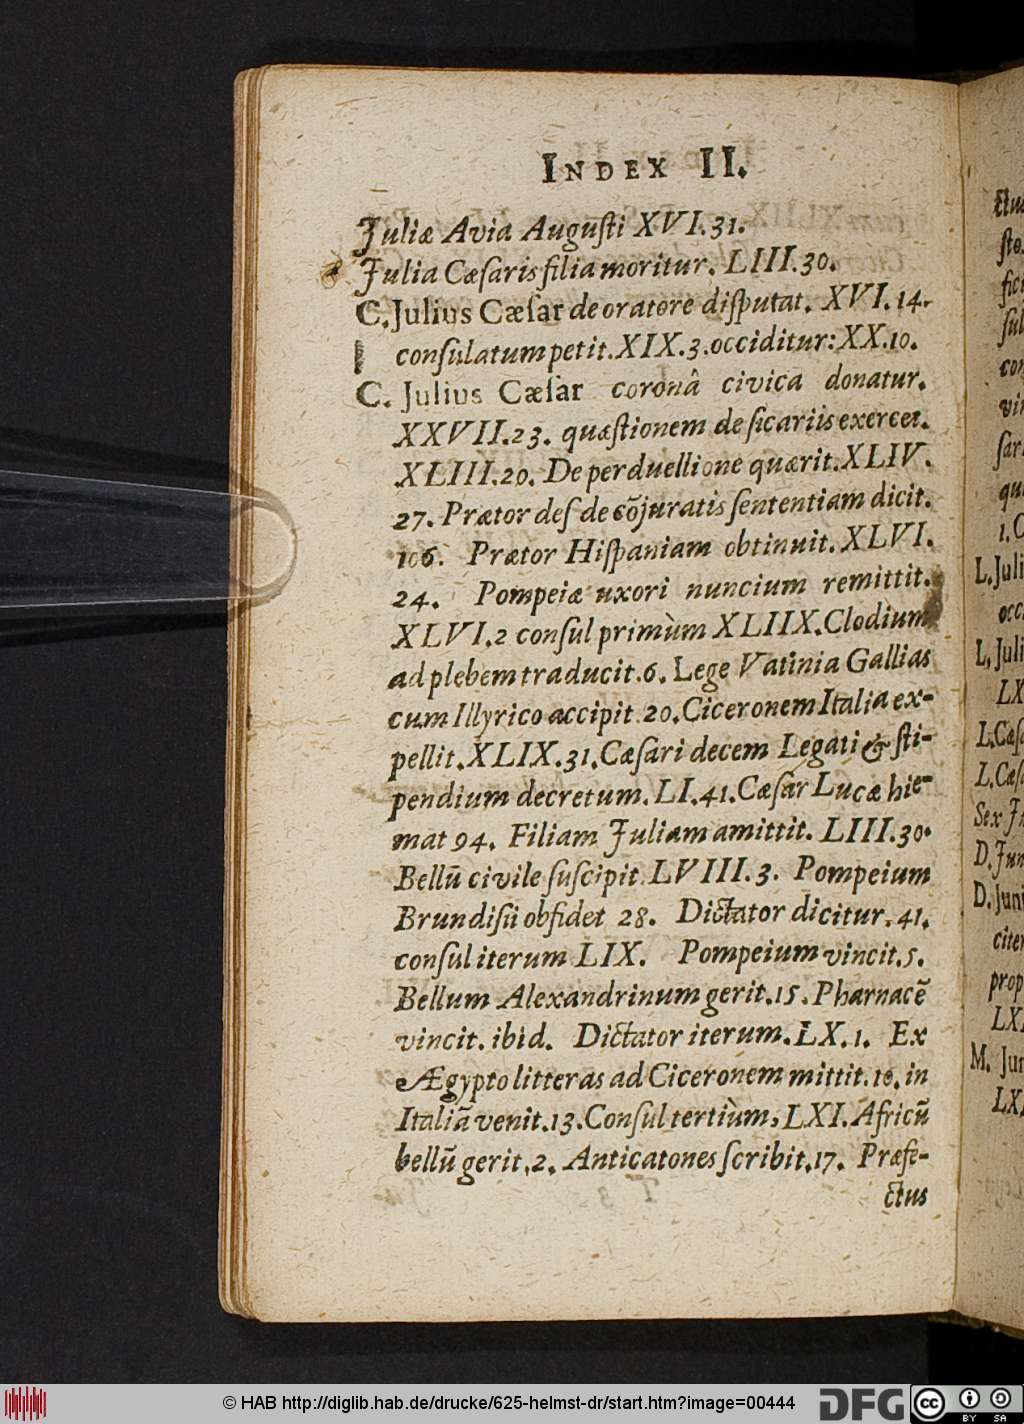 INDEX II.
Juliæ Avia Auguſti XVI.31.
Julia Cæſaris filia moritur. LIII.30.
C. Julius Cæſar de oratore diſputat. XVI.14.
conſulatum petit. XIX.3. occiditur: XX.10.
C. Julius Cæſar coronâ civica donatur.
XXVII.23. quæſtionem de ſicariis exercet.
XLIII.20. De perduellione quærit. XLIV.
27. Prætor deſ de cõjuratis ſententiam dicit.
106. Prætor Hiſpaniam obtinuit. XLVI.
24. Pompeiæ uxori nuncium remittit.
XLVI.2 conſul primùm XLIIX. Clodium
ad plebem traducit.6. Lege Vatinia Gallias
cum Illyrico accipit 20. Ciceronem Italia ex-
pellit. XLIX.31. Cæſari decem Legati & ſti-
pendium decretum. LI.41. Cæſar Lucæ hie-
mat 94. Filiam Juliam amittit. LIII.30.
Bellũ civile ſuſcipit LVIII.3. Pompeium
Brundiſii obſidet 28. Dictator dicitur. 41.
conſul iterum LIX. Pompeium vincit.5.
Bellum Alexandrinum gerit.15. Pharnacẽ
vincit. ibid. Dictator iterum. LX.1. Ex
Ægypto litteras ad Ciceronem mittit.10. in
Italiã venit.13. Conſul tertiùm, LXI. Africũ
bellũ gerit.2. Anticatones ſcribit.17. Præfe-
ctus
ſto.
L. Juli
occ
L. Juli
LX
L. Cæſ
L. Cæſ
D. Jun
D. Juni
citer
prop
LXI
M. Jun
LXI
© HAB http://diglib.hab.de/drucke/625-helmst-dr/start.htm?image=00444
DFG
cc
BY SA